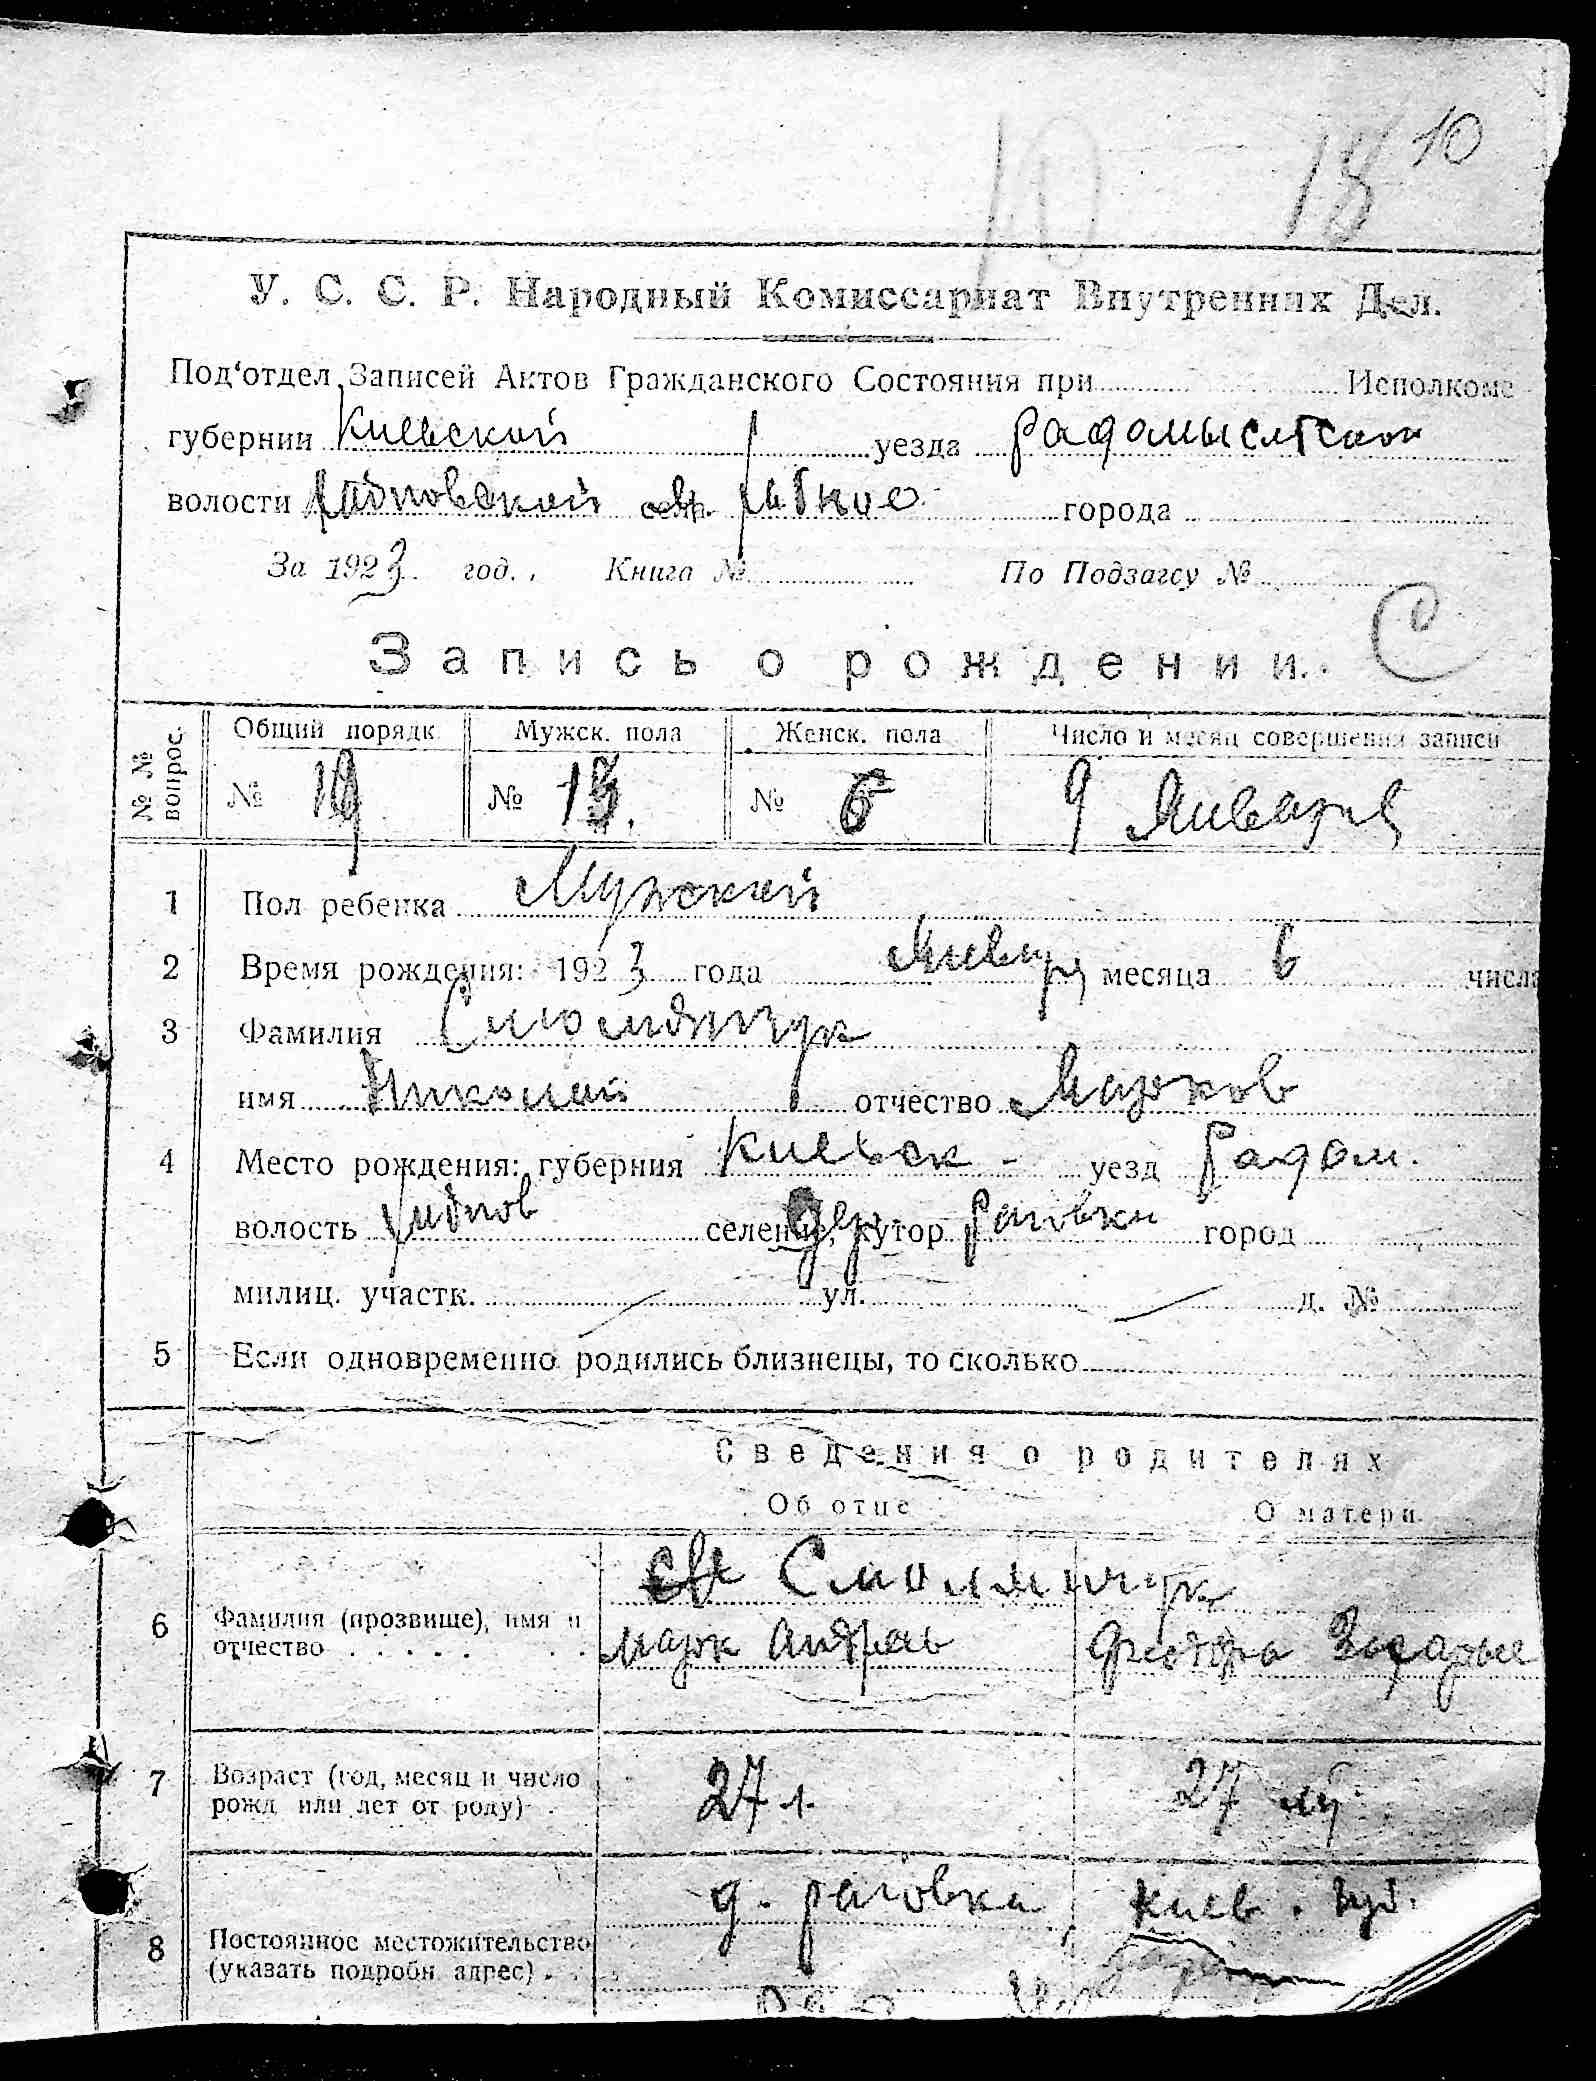 10
18 10
У. С. С. Р. Народный Комиссариат Внутренних Дел.
Под'отдел Записей Актов Гражданского Состояния при Исполкоме
губернии Киевской уезда Радомысльской
волости города
За 1923 год. Книга № По Подзагсу №
Запись о рождении.
№ № вопрос. Общий порядк Мужск. пола Женск. пола Число и месяц совершения записи
№ 19 № 13. № 6 9 Января
1 Пол ребенка Мужский
2 Время рождения: 1923 года Январ месяца 6 числа
3 Фамилия Смолянчук
имя Николай отчество Марков
4 Место рождения: губерния Киевск - уезд Радом.
волость селение, хутор дер. Раговка город
милиц. участк. ул. д. №
5 Если одновременно родились близнецы, то сколько
Сведения о родителях
Об отце О матери
Смолянчук
6 Фамилия (прозвище), имя и
отчество Марк Андрев
7 Возраст (год, месяц и число
рожд или лет от роду) 27 л. 27 лет
д. Раговка Киев. губ.
8 Постоянное местожительство
(указать подробн адрес)